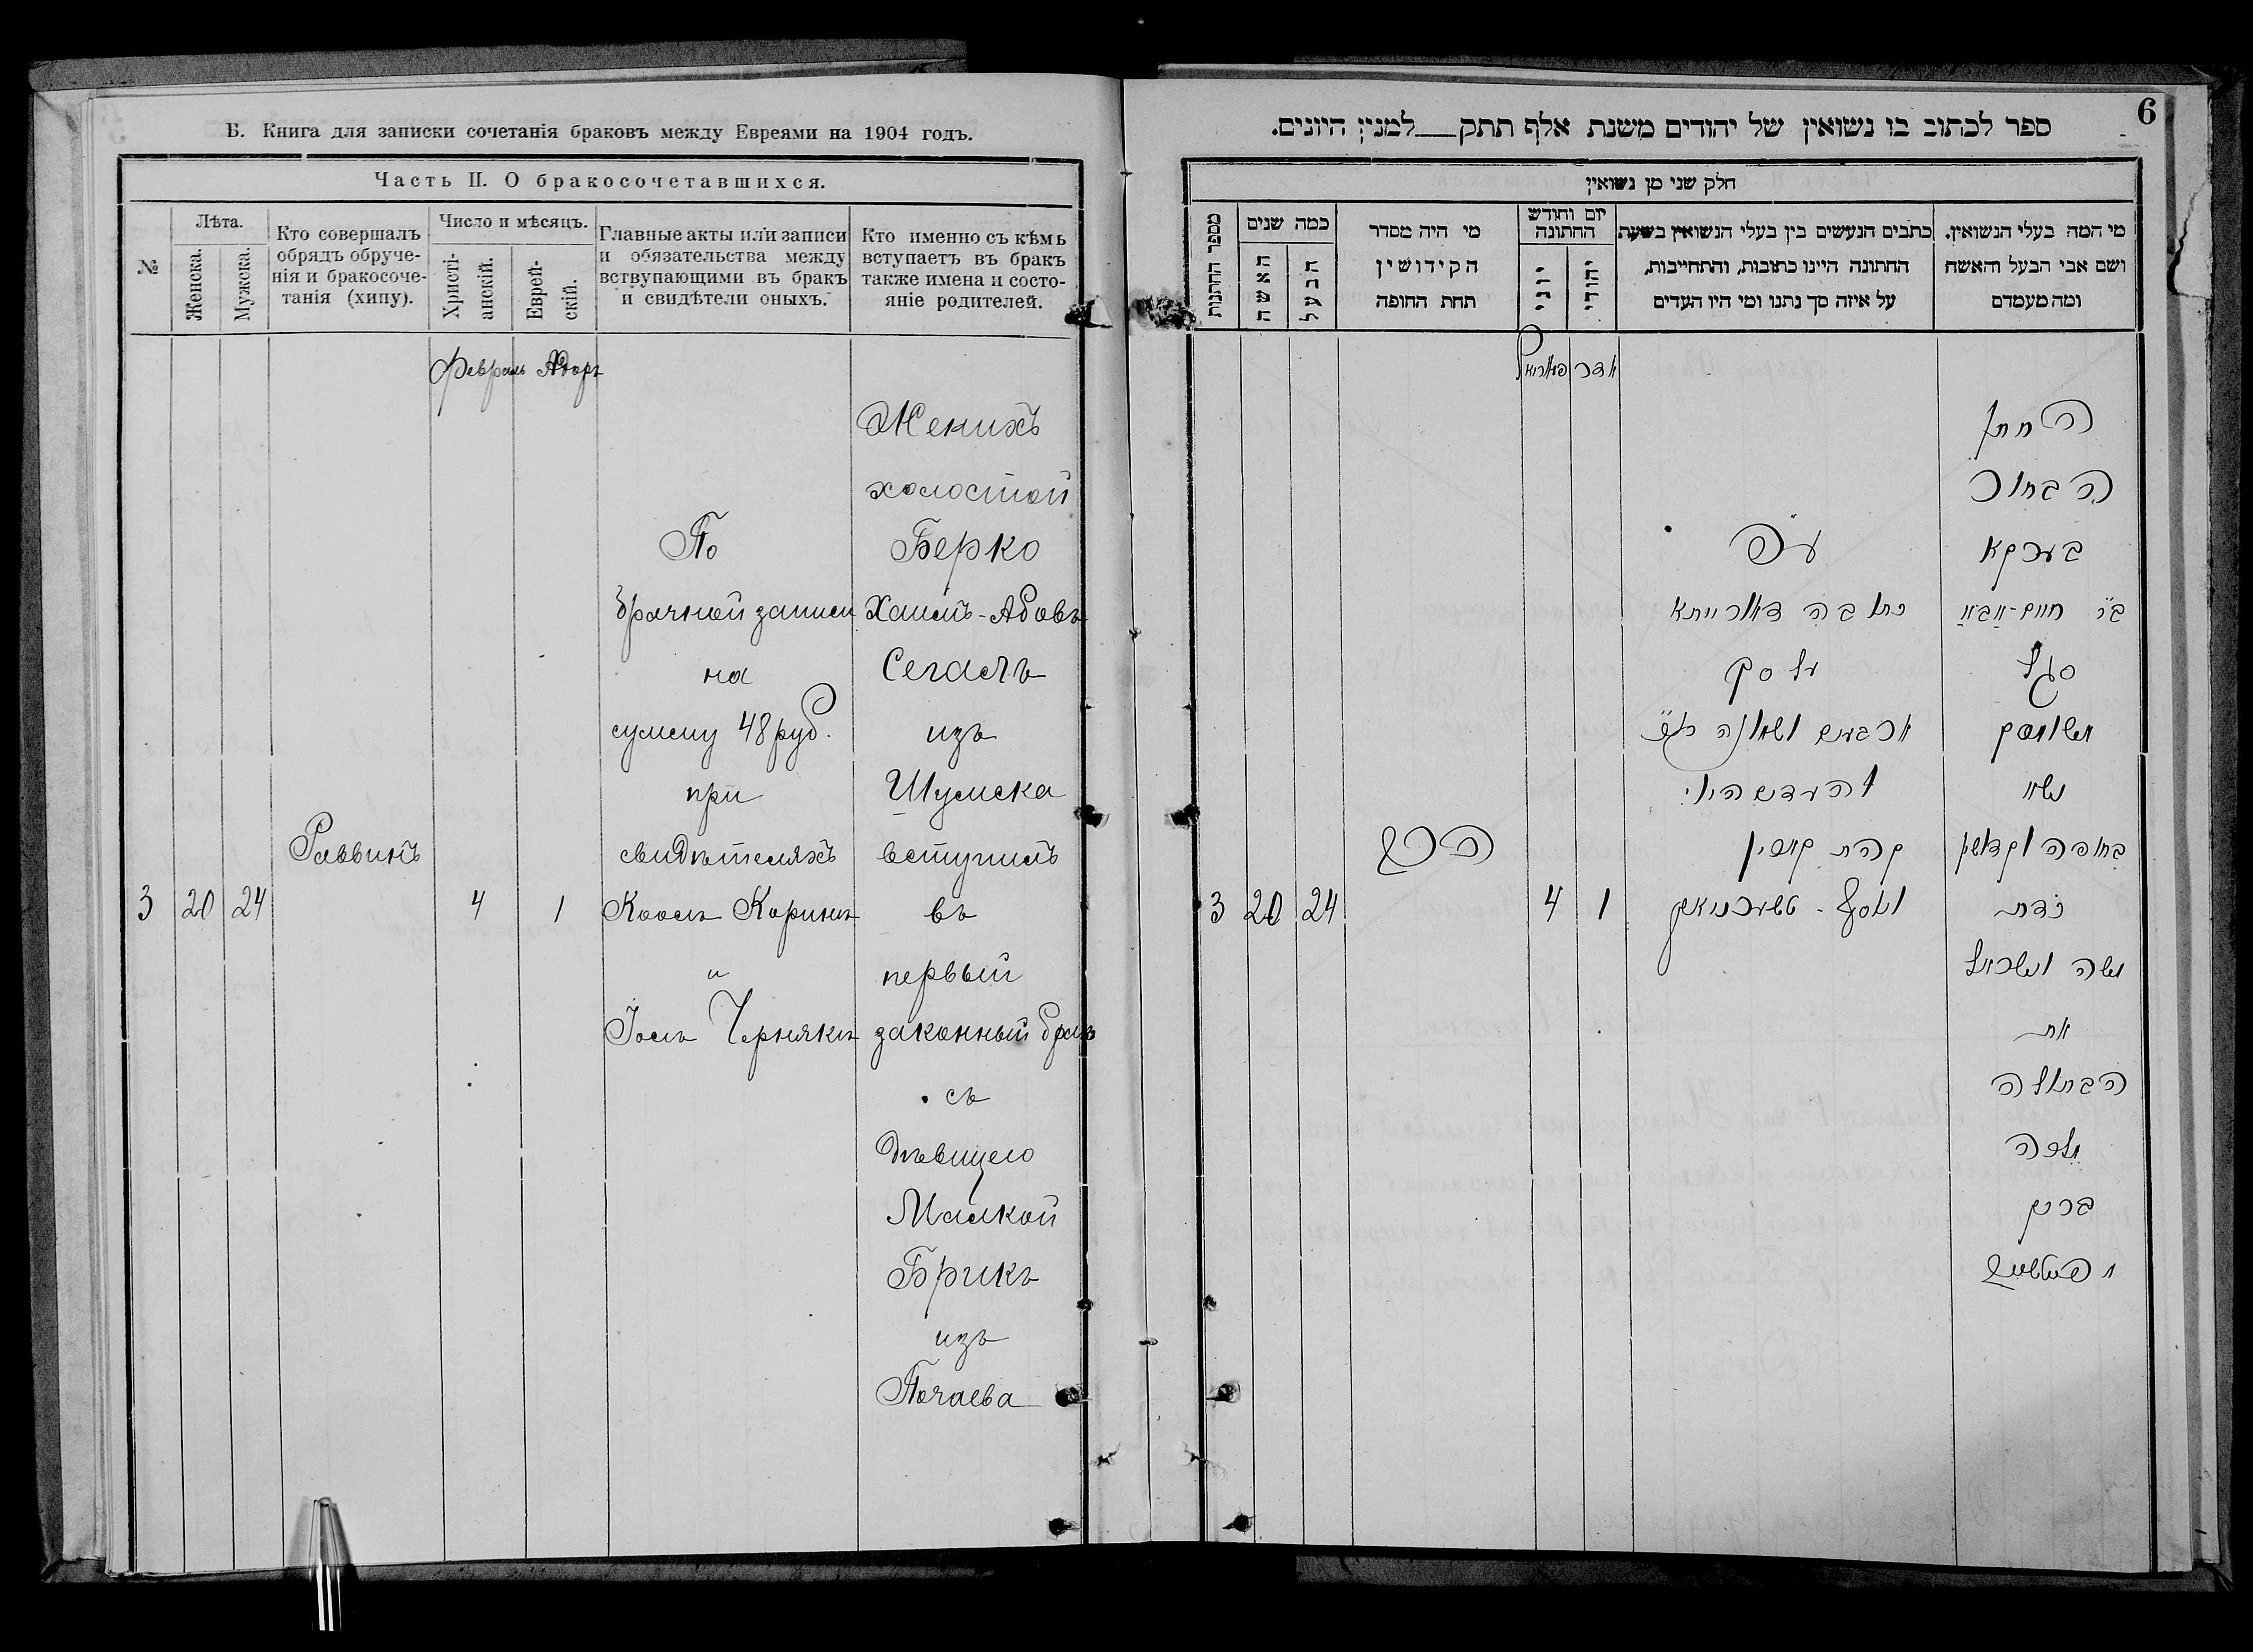 Б. Книга для записки сочетанія браковъ между Евреями на 1904 годъ.
Часть II. О бракосочетавшихся.
№
Лѣта.
Женска.
Мужска.
Кто совершалъ
обрядъ обруче-
нія и бракосоче-
танія (хипу).
Число и мѣсяцъ.
Христі-
анскій.
Еврей-
скій.
Главные акты или записи
и обязательства между
вствупающими въ бракъ
и свидѣтели оныхъ.
Кто именно съ кѣмъ
вступаетъ въ бракъ
также имена и состо-
яніе родителей.
Февраль Адоръ
3 20 24
Раввинъ
4 1
По
брачной записи
на
сумму 48 руб.
при
свидѣтеляхъ
Коринъ
и
Іосъ Чернякъ
Женихъ
холостой
Берко
Хаимъ-Абовъ
Сегалъ
изъ
Шумска
вступилъ
въ
первый
законный бракъ
съ
дѣвицею
Малкой
Брикъ
изъ
Почаева
6
ספר לכתוב בו נשואין של יהודים משנת אלף תתק למנין היונים.
חלק שני מן נשואין
מי המה בעלי הנשואין.
ושם אבי הבעל והאשח
ומה מעמדם
כתבים הנעשים בין בעלי הנשואין בשעת
החתונה היינו כתובות, והתחייבות,
על איזה סך נתנו ומי היו העדים
יום וחודש
החתונה
יהודי
יוני
מי היה מסדר
הקידושין
תחת החופה
כמה שנים
הבעל
האשה
מספר החתנות
אדר
החתן
הבחור
בערקא
ב״ר חיים-אבא
סגל
נשא
בחופה וקדושין
כדת
משה וישראל
את
הבתולה
מלכה
בריק
ע״פ
כתובה דאורייתא
על סך
ארבעים ושמונה
קהת קארין
ויוסף - טשערניאק
הרב
1 4
24 20 3